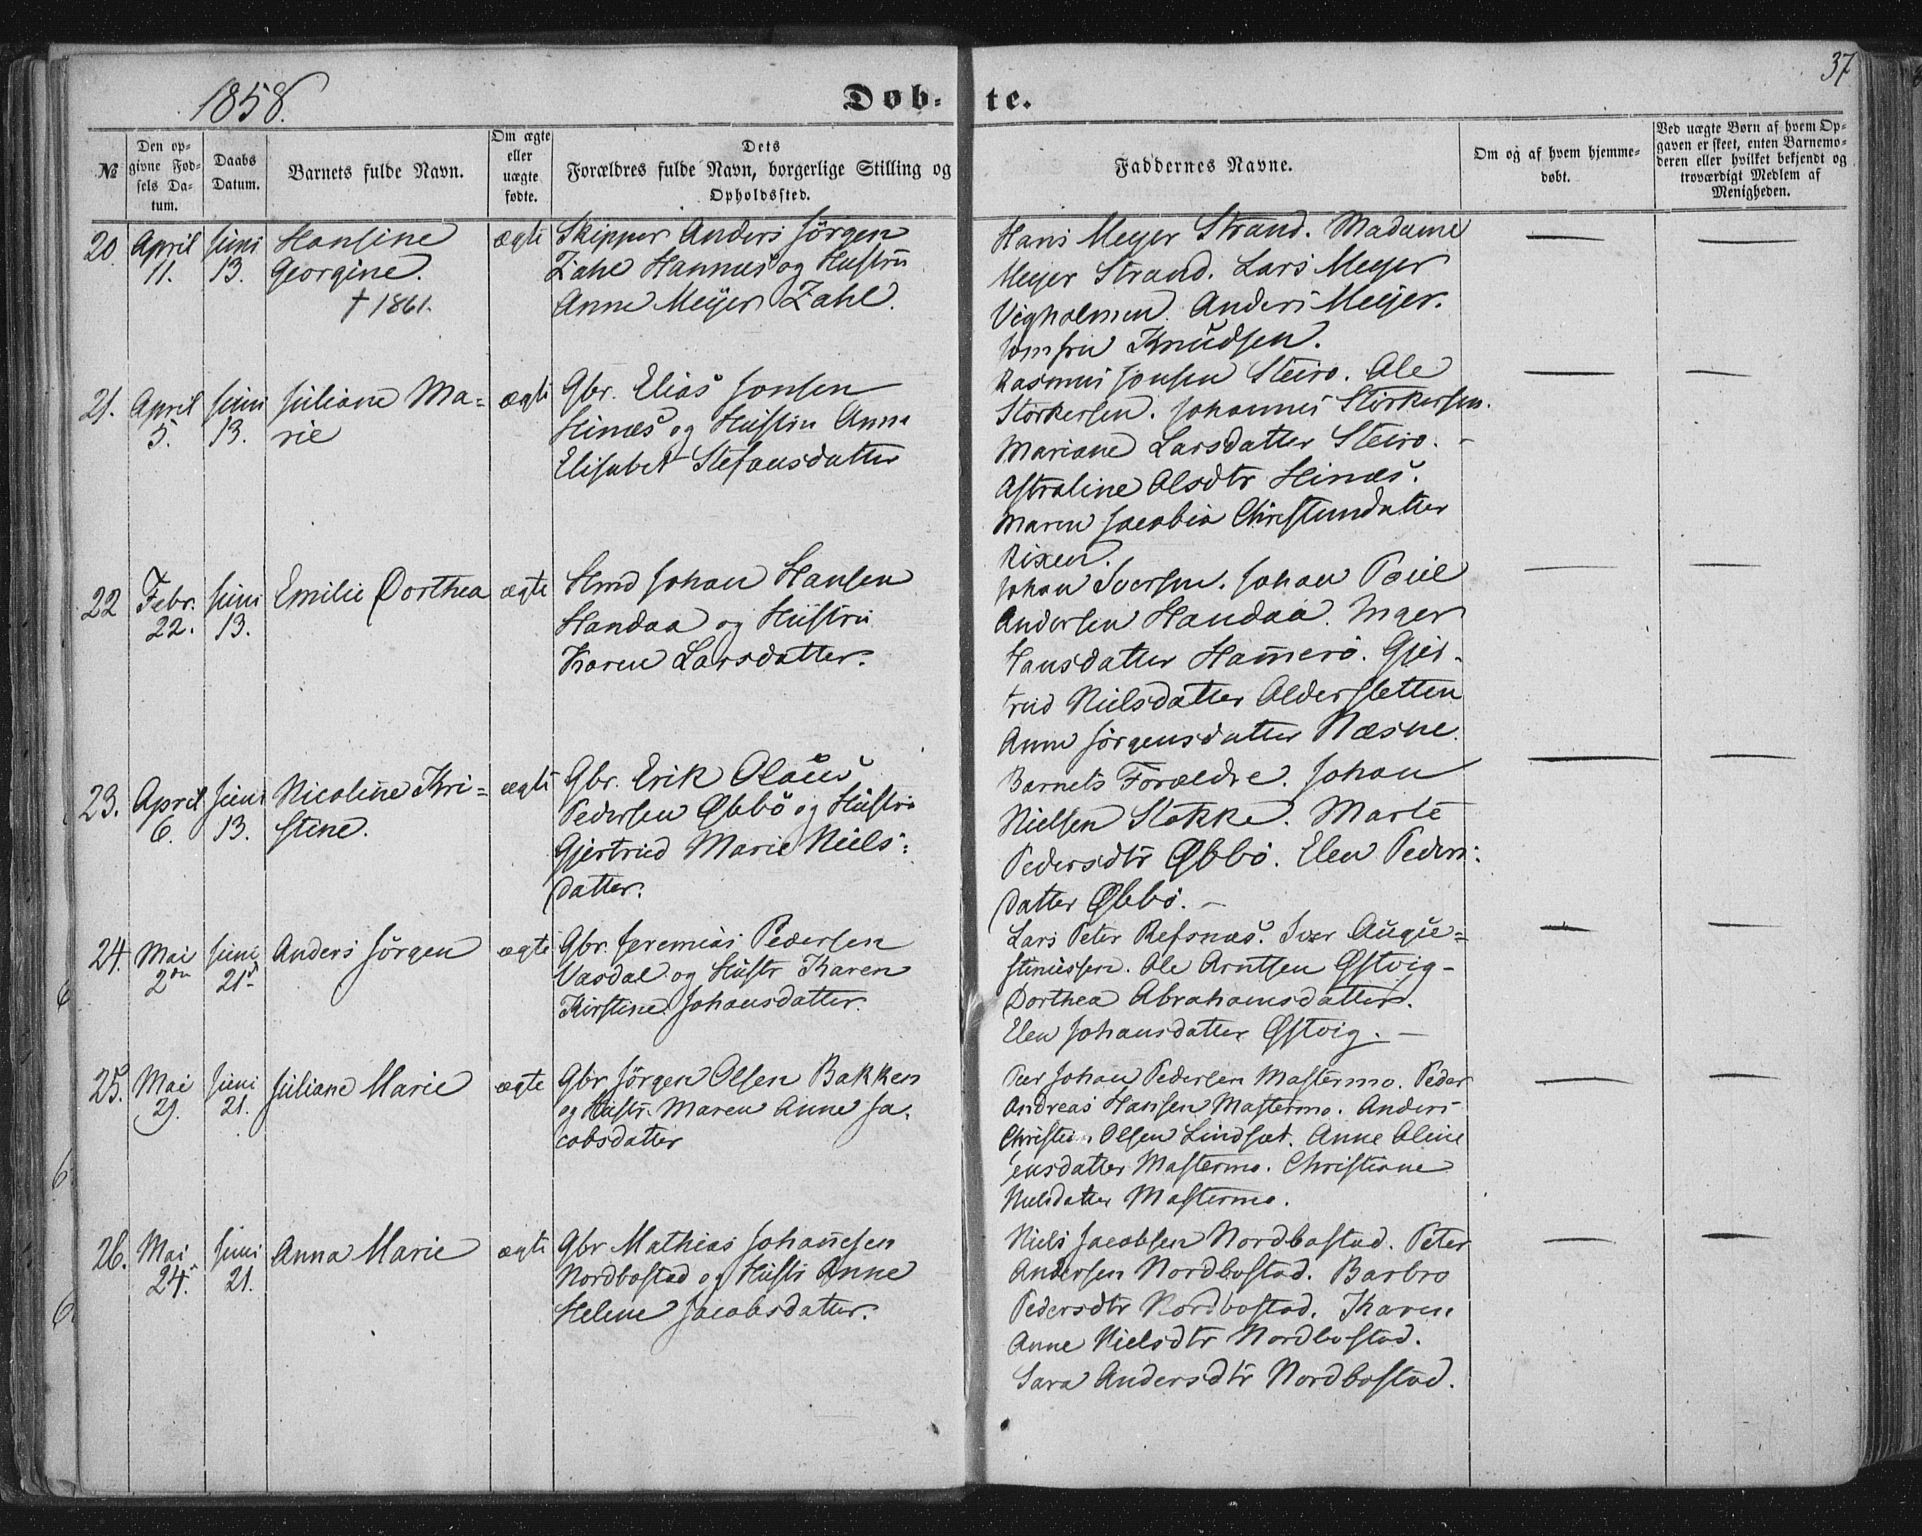 1858.
Døb-
te.
37
№
Den op-
givne Fød-
sels Da-
tum.
Daabs
Datum.
Barnets fulde Navn.
Om ægte
eller
uægte
fødte.
Dets
Forældres fulde Navn, borgerlige Stilling og
Opholdssted.
Faddernes Navne.
Om og af hvem hjemme-
døbt.
Ved uægte Børn af hvem Op-
gaven er skeet, enten Barnemo-
deren eller hvilket bekjendt og
troværdigt Medlem af
Menigheden.
20.
April
11.
Juni
13.
Hansine
Georgine.
† 1861.
ægte
Skipper Anders Jørgen
Zahl Hannus og Hustru
Anne Meyer Zahl.
Hans Meyer Strand. Madame
Meyer Strand. Lars Meyer
Vigholmen. Anders Meyer.
Jomfru Knudsen.
21.
April
5.
Juni
13.
Juliane Ma-
rie
ægte
Gbr. Elias Jonsen
Hinæs og Hustru Anne
Elisabet Stefansdatter
Rasmus Jonsen Steiro. Ole
Storkersen. Johannes Storkersen.
Mariane Larsdatter Steiro. -
Astraline Olsdtr Hinæs.
Maren Jacobia Christensdatter
Rixen.
22
Febr.
22.
Juni
13.
Emilie Dorthea
ægte
Hmd Johan Hansen
Handaa og Hustru
Karen Larsdatter.
Johan Iversen. Johan Povel
Andersen Handaa. Inger
Hansdatter Hamerö. Gjer-
trud Nielsdatter Aldersletten
Anne Jörgensdatter Næsne.
23.
April
6.
Juni
13.
Nicoline Kri-
stine.
ægte
Gbr. Erik Olaus
Pedersen Øbbö og Hustru
Gjertrud Marie Niels-
datter.
Barnets Forældre. Johan
Nielsen Stokke. Marte
Pedersdtr Øbbö. Elen Peders-
datter Øbbö. -
24.
Mai
2den
Juni
21d
Anders Jörgen
ægte
Gbr. Jeremias Pedersen
Vasdal og Hustr Karen
Kirstine Johansdatter.
Lars Peter Refsnæs. Iver Augu-
stinussen. Ole Arntsen Østvig-
Dorthea Abrahamsdatter.
Elen Johansdatter Østvig. -
25.
Mai
29.
Juni
21.
Juliane Marie
ægte
Gbr Jörgen Olsen Bakken
og Hustr. Maren Anne Ja-
cobsdatter
Peer Johan Pedersen Mastermo. Peder
Andreas Hansen Mastermo. Anders
Olsen Lindsæt. Anne Oline
Mastermo. Christiane
Nielsdatter Mastermo.
26.
Mai
24.
Juni
21.
Anna Marie
ægte
Gbr Mathias Johanesen
Nordbostad og Hustr Anne
Helene Jacobsdatter.
Niels Jacobsen Nordbostad. Peter
Andersen Nordbostad. Barbro
Pedersdtr Nordbostad. Karen
Anne Nielsdtr Nordbostad.
Sara Andersdtr Nordbostad.